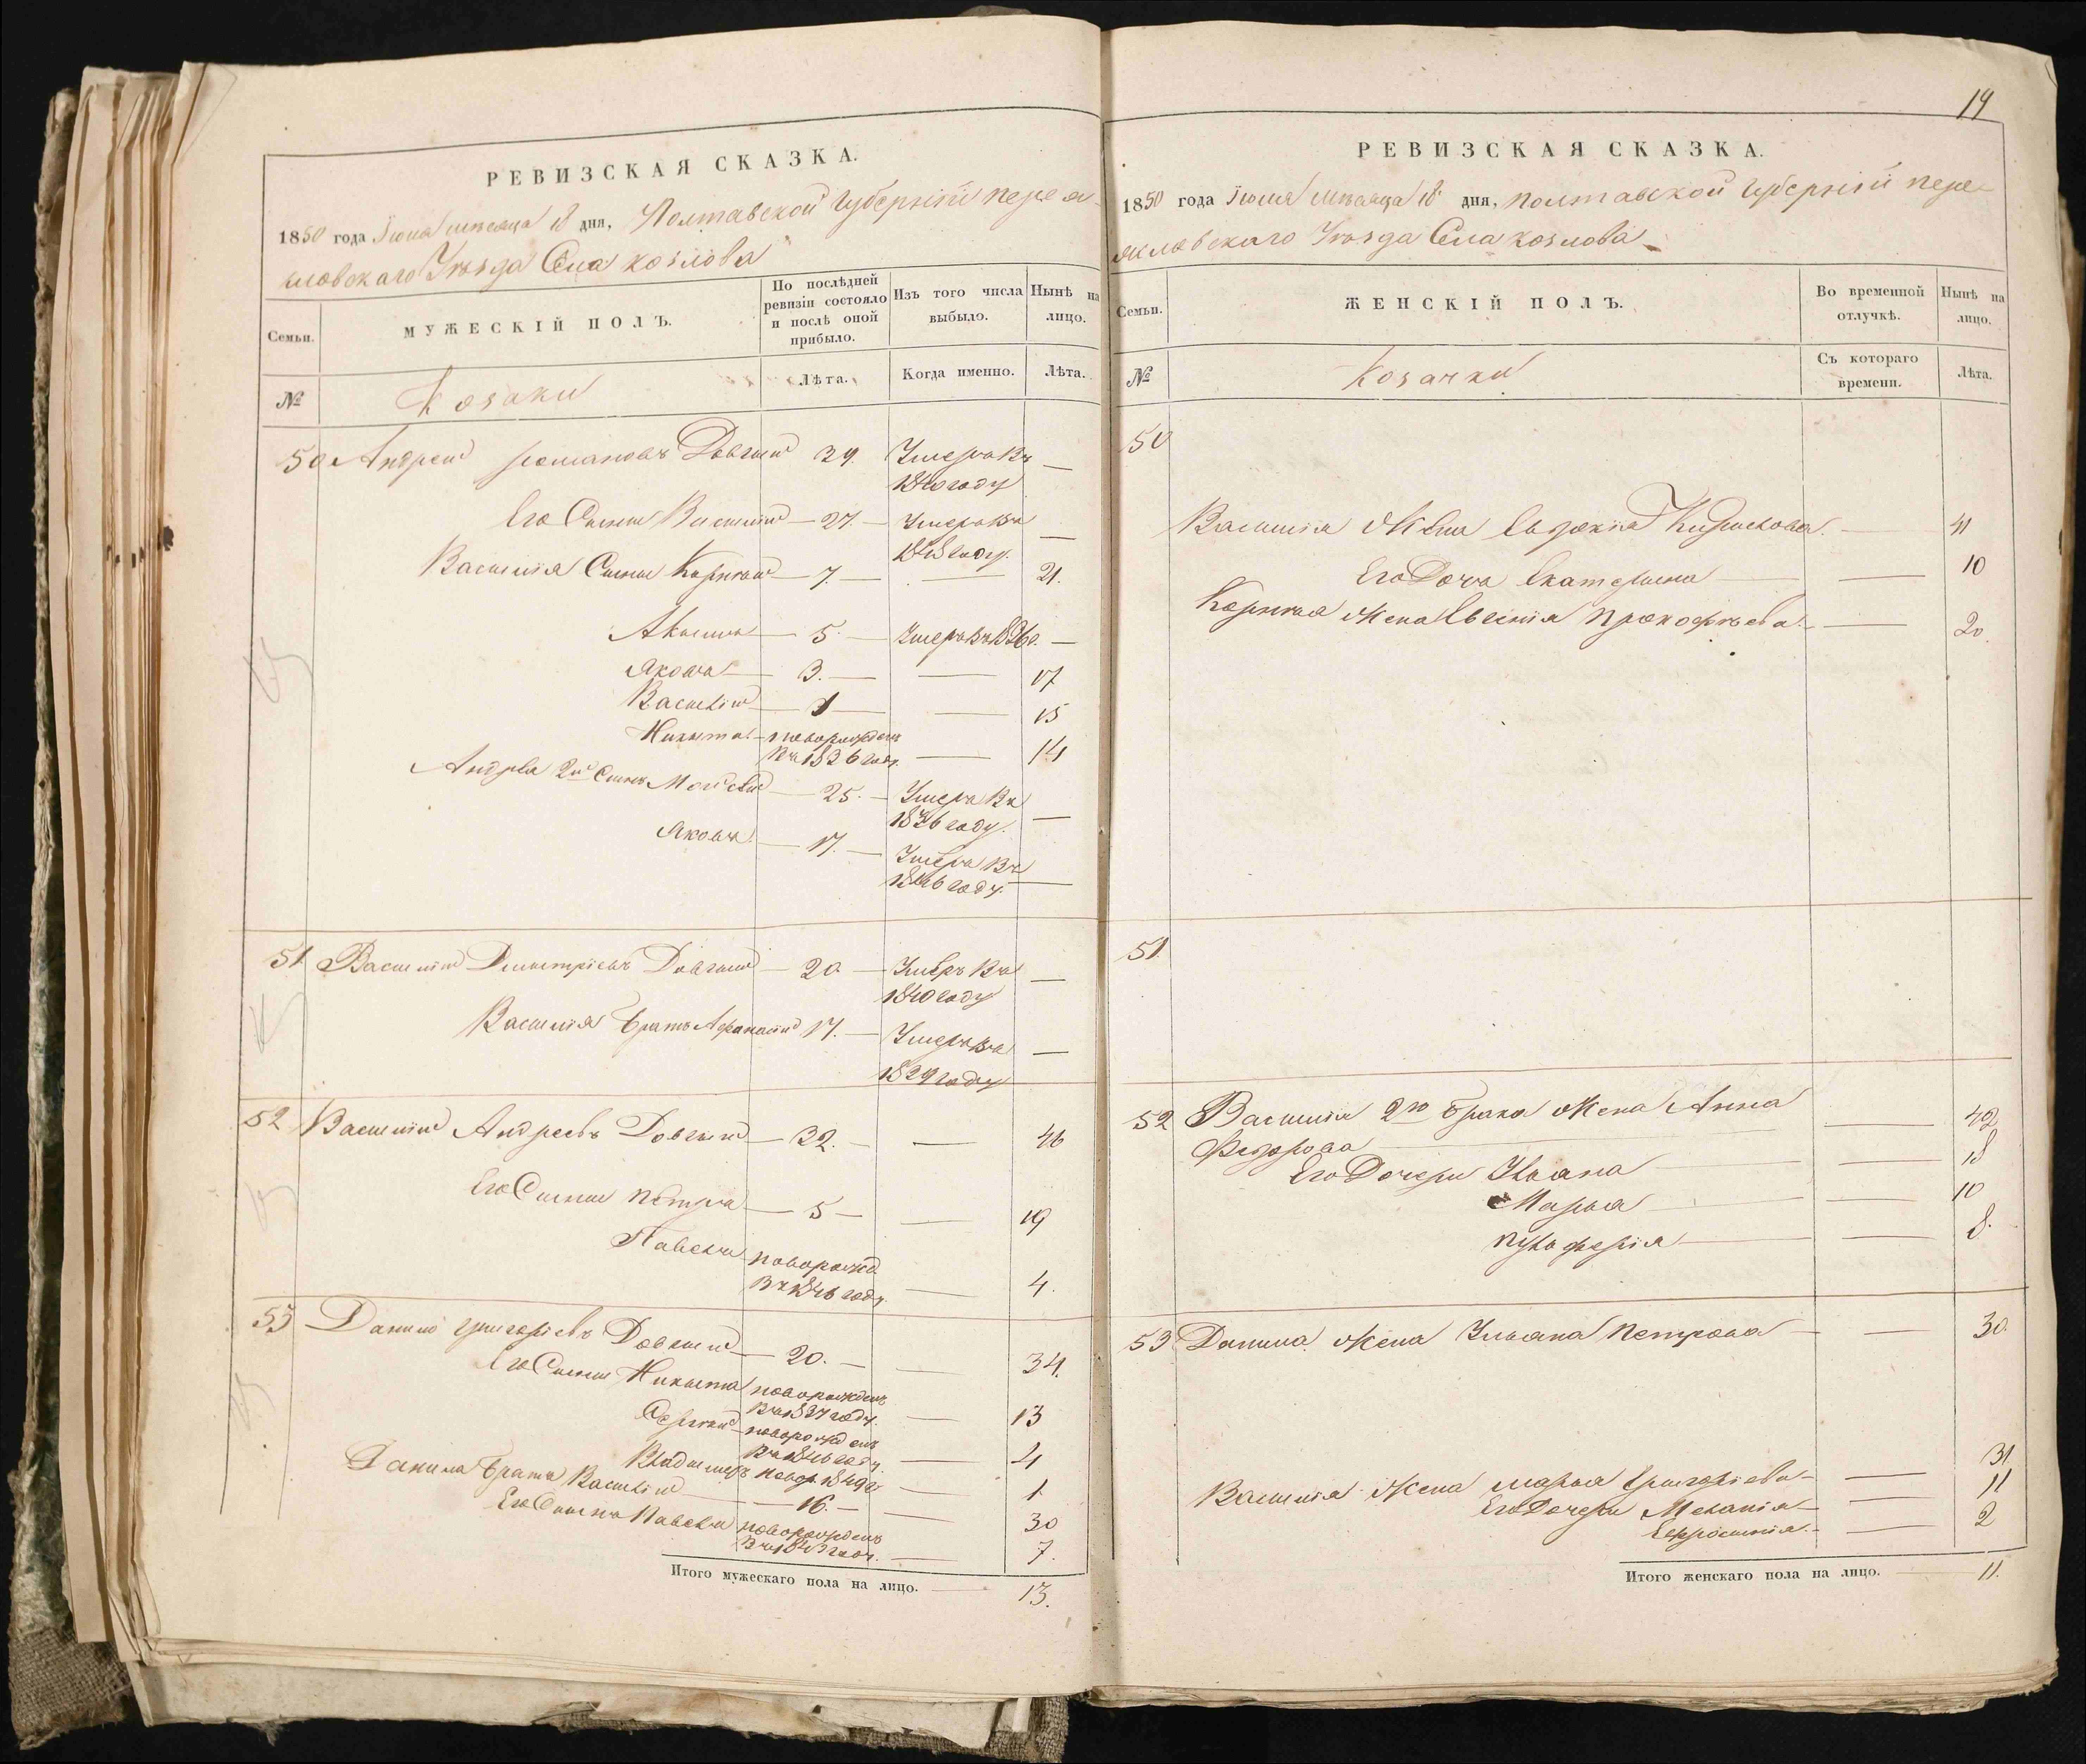 РЕВИЗСКАЯ СКАЗКА.
1850 года Іюня мѣсяца 18 дня, Полтавской Губерніи Перея-
славскаго Уѣзда Села Козлова
Семьи.
МУЖЕСКІЙ ПОЛЪ.
По послѣдней ревизіи состояло и послѣ оной прибыло.
Изъ того числа выбыло.
Нынѣ на лицо.
№
Козаки
Лѣта.
Когда именно.
Лѣта.
50 Андрей Романовъ Довгий 39. Умеръ въ 1840 году —
Его Сынъ Василій — 27. — Умеръ въ 1848 году. —
Василія Сынъ Корнѣй — 7. — — 21.
5. — Умеръ въ 1836 г. —
Яковъ — 3. — — 17
Василій — 1 — — 15
Никита — новорожденъ въ 1836 году — 14
Андрея 2й Сынъ Мойсей — 25. — Умеръ въ 1836 году. —
Яковъ — 17. — Умеръ въ 1846 году. —
51 Василій Дмитріевъ Довгий — 20 — Умеръ въ 1840 году —
Василія братъ Афанасій 17. — Умеръ въ 1839 году —
52 Василій Андреевъ Довгий — 32. — — 46
Его Сынъ Петръ — 5 — — 19
Павелъ новорожд. въ 1846 году — 4.
53 Данило Григоріевъ Довгий — 20. — — 34.
Его Сынъ Никита новорожденъ въ 1837 году. — 13
Сергѣй — новорожденъ въ 1846 году — 4
Владимеръ новор. 1849 г. — 1.
Данила братъ Василій — 16. — — 30
Его Сынъ Павелъ новорожденъ въ 1843 году. — 7.
Итого мужескаго пола на лицо. — 13.
19
РЕВИЗСКАЯ СКАЗКА.
1850 года Іюня мѣсяца 18 дня, Полтавской Губерніи Пере-
яславскаго Уѣзда Села Козлова
Семьи.
ЖЕНСКІЙ ПОЛЪ.
Во временной отлучкѣ.
Нынѣ на лицо.
№
Козачки
Съ котораго времени.
Лѣта.
50
Василія Жена Евдокія — 41
Его Дочь Екатерина — 10
Корнѣя Жена Евгенія Прокофьева — — 20.
51
52 Василія 2го брака Жена Анна
Федорова — 42
Его Дочери Ульяна — 18
Марья — 10
Пульхерія — 8.
53 Данила Жена Ульяна Петрова — — 30.
Василія Жена Марья Григоріева — — 31
Его Дочери Меланія — — 11
Ефросинія — — 2
Итого женскаго пола на лицо. — 11.